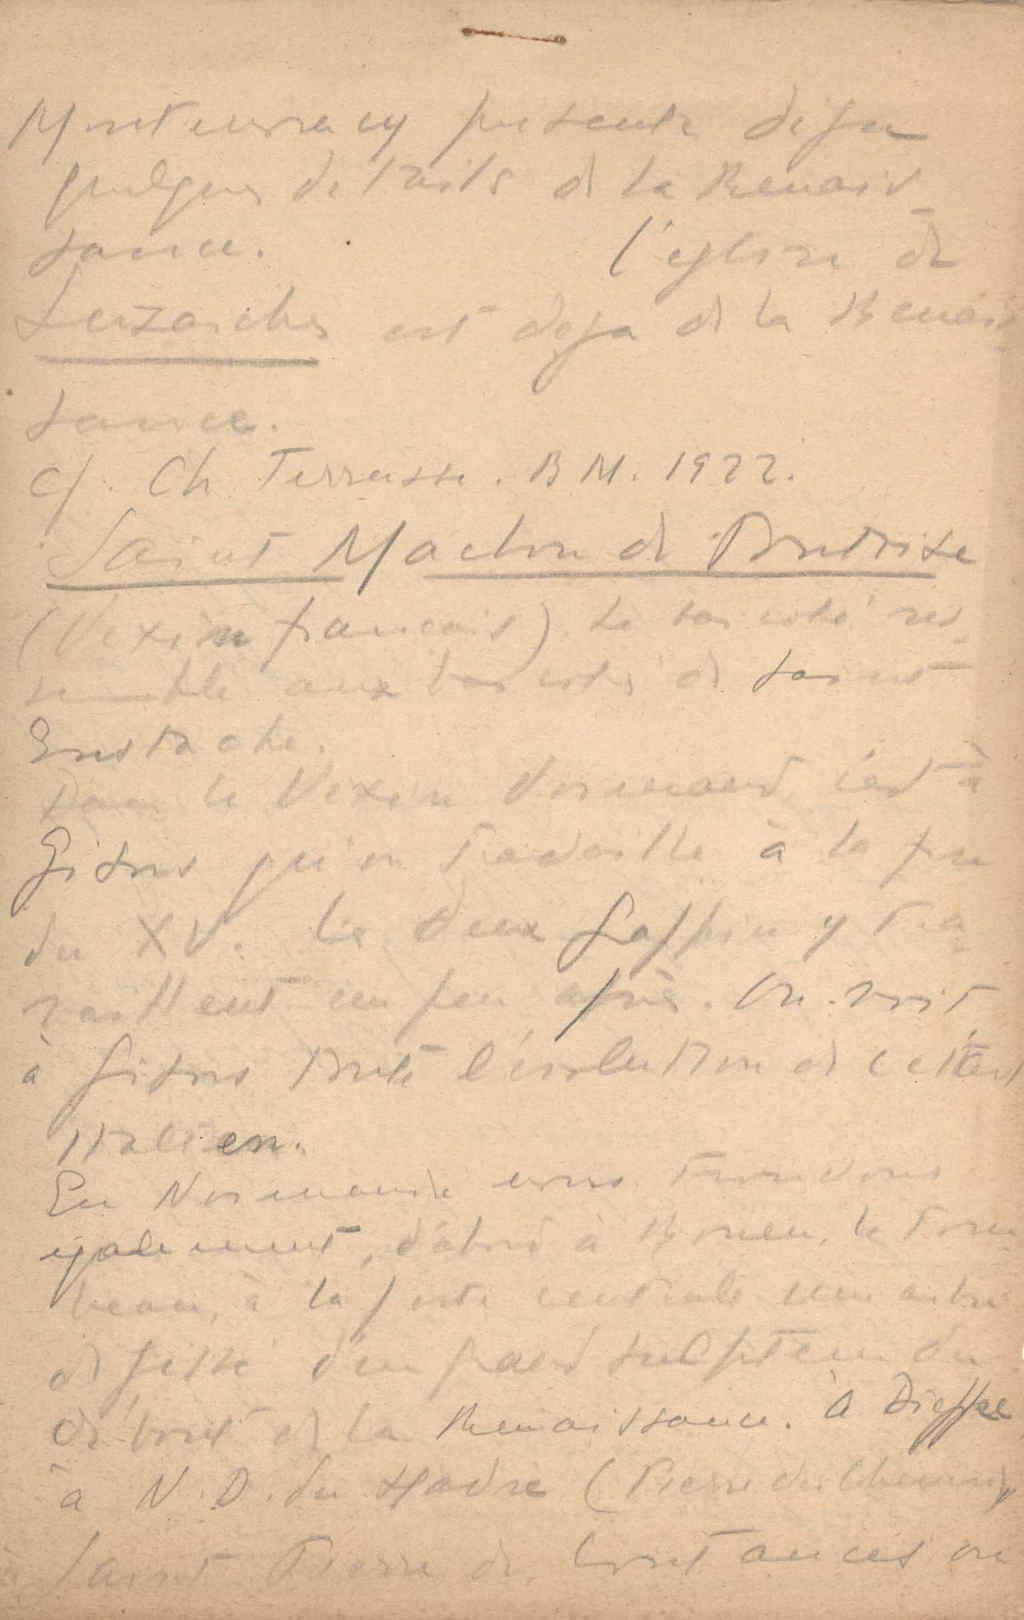 Montmorency présente déja
quelques détails de la Renais-
sance. L'église de
Luzarches est deja de la Renais
sance.
Cf. Ch Terrasse. B M. 1922.
Saint Maclou de Pontoise
(Vexin français) Le bas coté res-
semble aux bas cotés de saint
Eustache.
Dans le Vexin Normand, c'est à
Gisors qu'on travaille à la fin
du XV. Les deux Grappin y tra-
vaillent un peu après. On voit,
à Gisors toute l'évolution de cet art
italien.
En Normandie nous trouvons
également, d'abord à Rouen, le Tom
beau, à la porte centrale un arbre
de Jessé d'un grand sculpteur du
début de la Renaissance. à Dieppe
à N. D. du Havre (Pierre du Chemin)
Saint Pierre de Coutances on